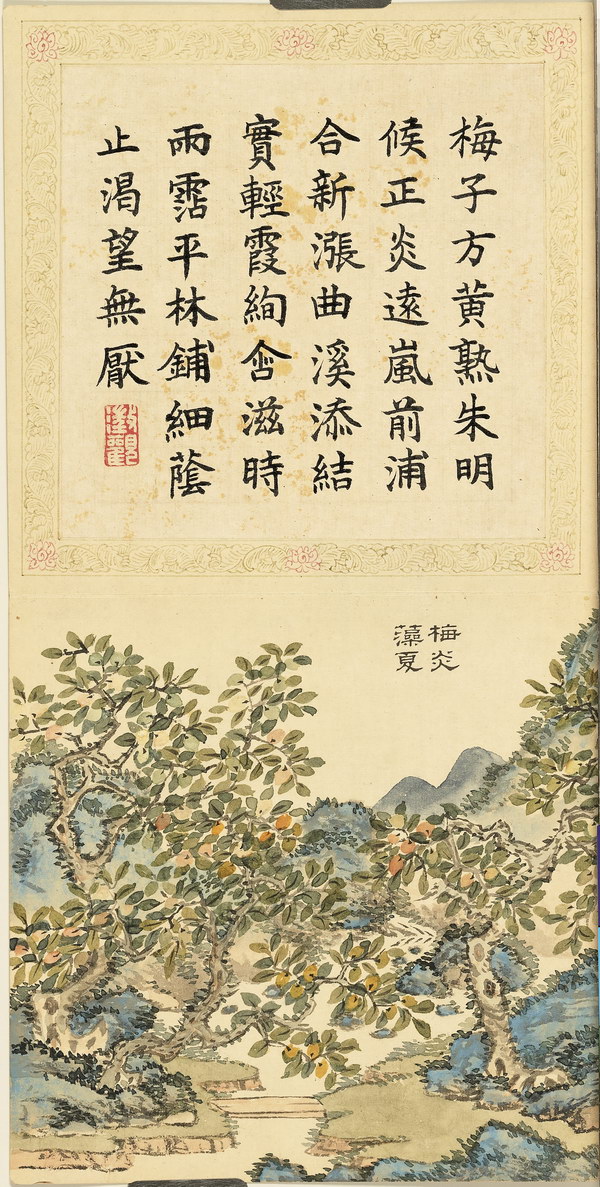 梅子方黄熟朱明
候正炎遠嵐前浦
合新漲曲溪添結
實輕霞絢含滋時
雨霑平林鋪細蔭
止渴望無厭
澂觀
梅炎
藻夏